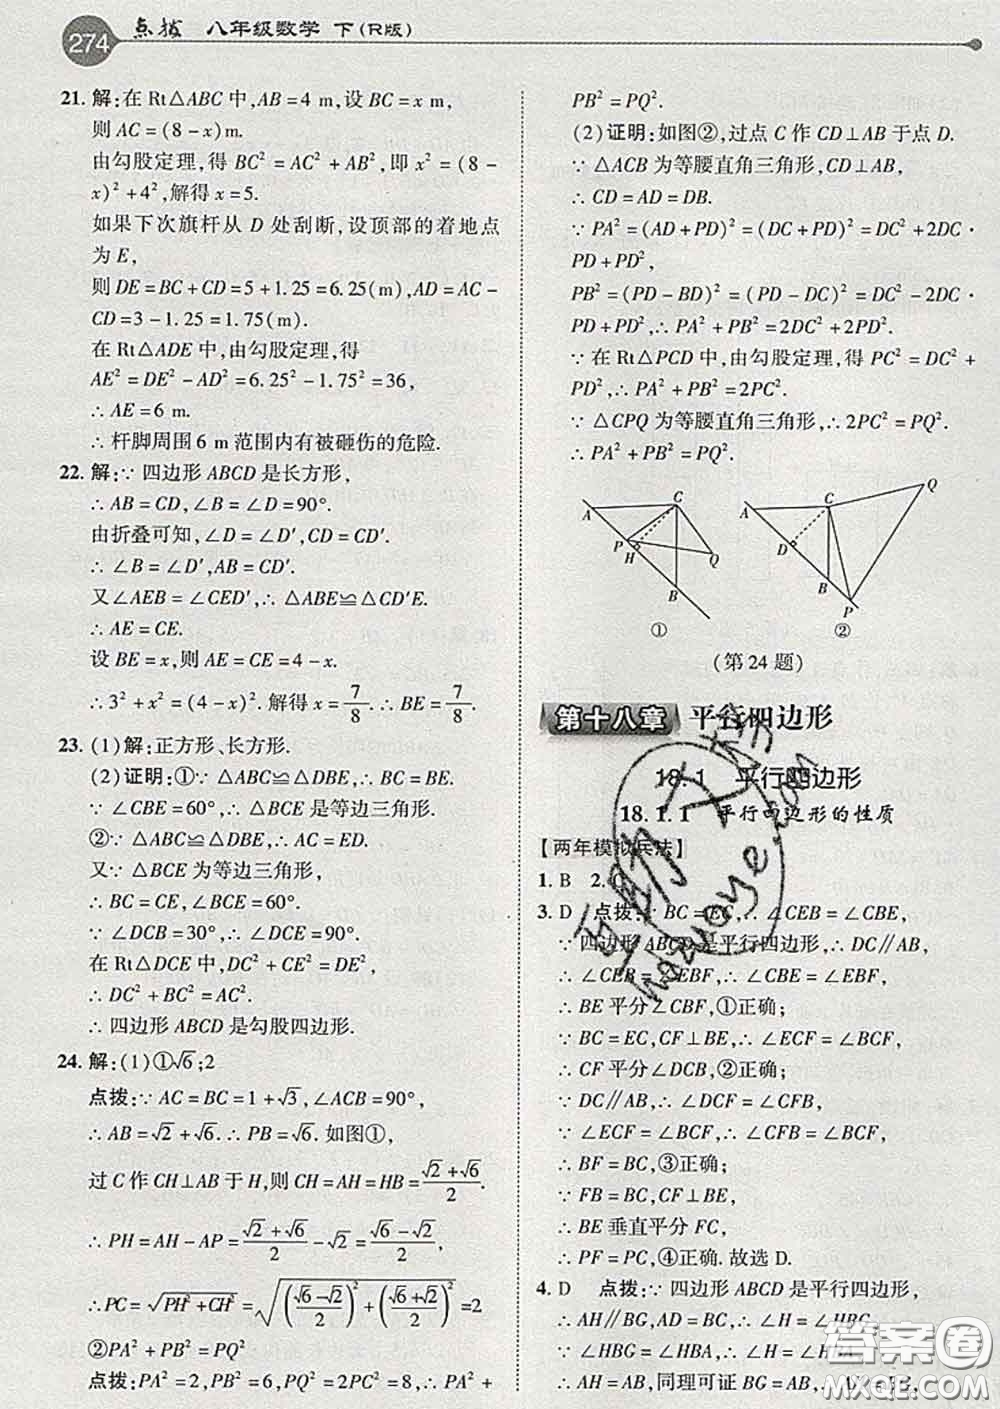 274 点拨 八年级数学 下(R版)
21. 解:在 Rt△ABC 中,AB=4 m,设 BC=x m,
则 AC=(8-x)m.
由勾股定理,得 BC²=AC²+AB²,即 x²=(8-
x)²+4²,解得 x=5.
如果下次旗杆从 D 处刮断,设顶部的着地点
为 E,
则 DE=BC+CD=5+1.25=6.25(m),AD=AC-
CD=3-1.25=1.75(m).
在 Rt△ADE 中,由勾股定理,得
AE²=DE²-AD²=6.25²-1.75²=36,
∴ AE=6 m.
∴ 杆脚周围 6 m 范围内有被砸伤的危险.
22. 解:∵ 四边形 ABCD 是长方形,
∴ AB=CD,∠B=∠D=90°.
由折叠可知,∠D=∠D′,CD=CD′.
∴ ∠B=∠D′,AB=CD′.
又∠AEB=∠CED′,∴ △ABE≌△CD′E.
∴ AE=CE.
设 BE=x,则 AE=CE=4-x.
∴ 3²+x²=(4-x)². 解得 x=7/8. ∴ BE=7/8.
23. (1)解:正方形、长方形.
(2)证明:①∵ △ABC≌△DBE,∴ BC=BE.
∵ ∠CBE=60°,∴ △CBE 是等边三角形.
②∵ △ABC≌△DBE,∴ AC=ED.
又∵ △BCE 为等边三角形,
∴ BC=CE,∠BCE=60°.
∵ ∠DCB=30°,∴ ∠DCE=90°.
在 Rt△DCE 中,DC²+CE²=DE²,
∴ DC²+BC²=AC².
∴ 四边形 ABCD 是勾股四边形.
24. 解:(1)①√6;2
点拨:∵ AC=BC=1+√3,∠ACB=90°,
∴ AB=√2+√6. ∴ PB=√6. 如图①,
过 C 作 CH⊥AB 于 H,则 CH=AH=HB=(√2+√6)/2.
∴ PH=AH-AP=(√2+√6)/2-√2=(√6-√2)/2,
∴ PC=√(PH²+CH²)=√(((√6-√2)/2)²+((√6+√2)/2)²)=2
②PA²+PB²=PQ²
点拨:∵ PA²=2,PB²=6,PQ²=2PC²=8,∴ PA²+
PB²=PQ².
(2)证明:如图②,过点 C 作 CD⊥AB 于点 D.
∵ △ACB 为等腰直角三角形,CD⊥AB,
∴ CD=AD=DB.
∵ PA²=(AD+PD)²=(DC+PD)²=DC²+2DC·
PD+PD²,
PB²=(PD-BD)²=(PD-DC)²=DC²-2DC·
PD+PD²,∴ PA²+PB²=2DC²+2PD².
∵ 在 Rt△PCD 中,由勾股定理,得 PC²=DC²+
PD²,∴ PA²+PB²=2PC².
∵ △CPQ 为等腰直角三角形,∴ 2PC²=PQ².
∴ PA²+PB²=PQ².
A C P H Q B
①
A C Q D B P
②
(第 24 题)
第十八章 平行四边形
18.1 平行四边形
18.1.1 平行四边形的性质
【两年模拟兵法】
1. B 2. C
3. D 点拨:∵ BC=EC,∴ ∠CEB=∠CBE,
∵ 四边形 ABCD 是平行四边形,∴ DC∥AB,
∴ ∠CEB=∠EBF,∴ ∠CBE=∠EBF,
∴ BE 平分∠CBF,①正确;
∵ BC=EC,CF⊥BE,∴ ∠ECF=∠BCF,
∴ CF 平分∠DCB,②正确;
∵ DC∥AB,∴ ∠DCF=∠CFB,
∵ ∠ECF=∠BCF,∴ ∠CFB=∠BCF,
∴ BF=BC,③正确;
∵ FB=BC,CF⊥BE,
∴ BE 垂直平分 FC,
∴ PF=PC,④正确. 故选 D.
4. D 点拨:∵ 四边形 ABCD 是平行四边形,
∴ AH∥BG,AD=BC,∴ ∠H=∠HBG.
∵ ∠HBG=∠HBA,∴ ∠H=∠HBA,
∴ AH=AB,同理可证 BG=AB,
答案圈